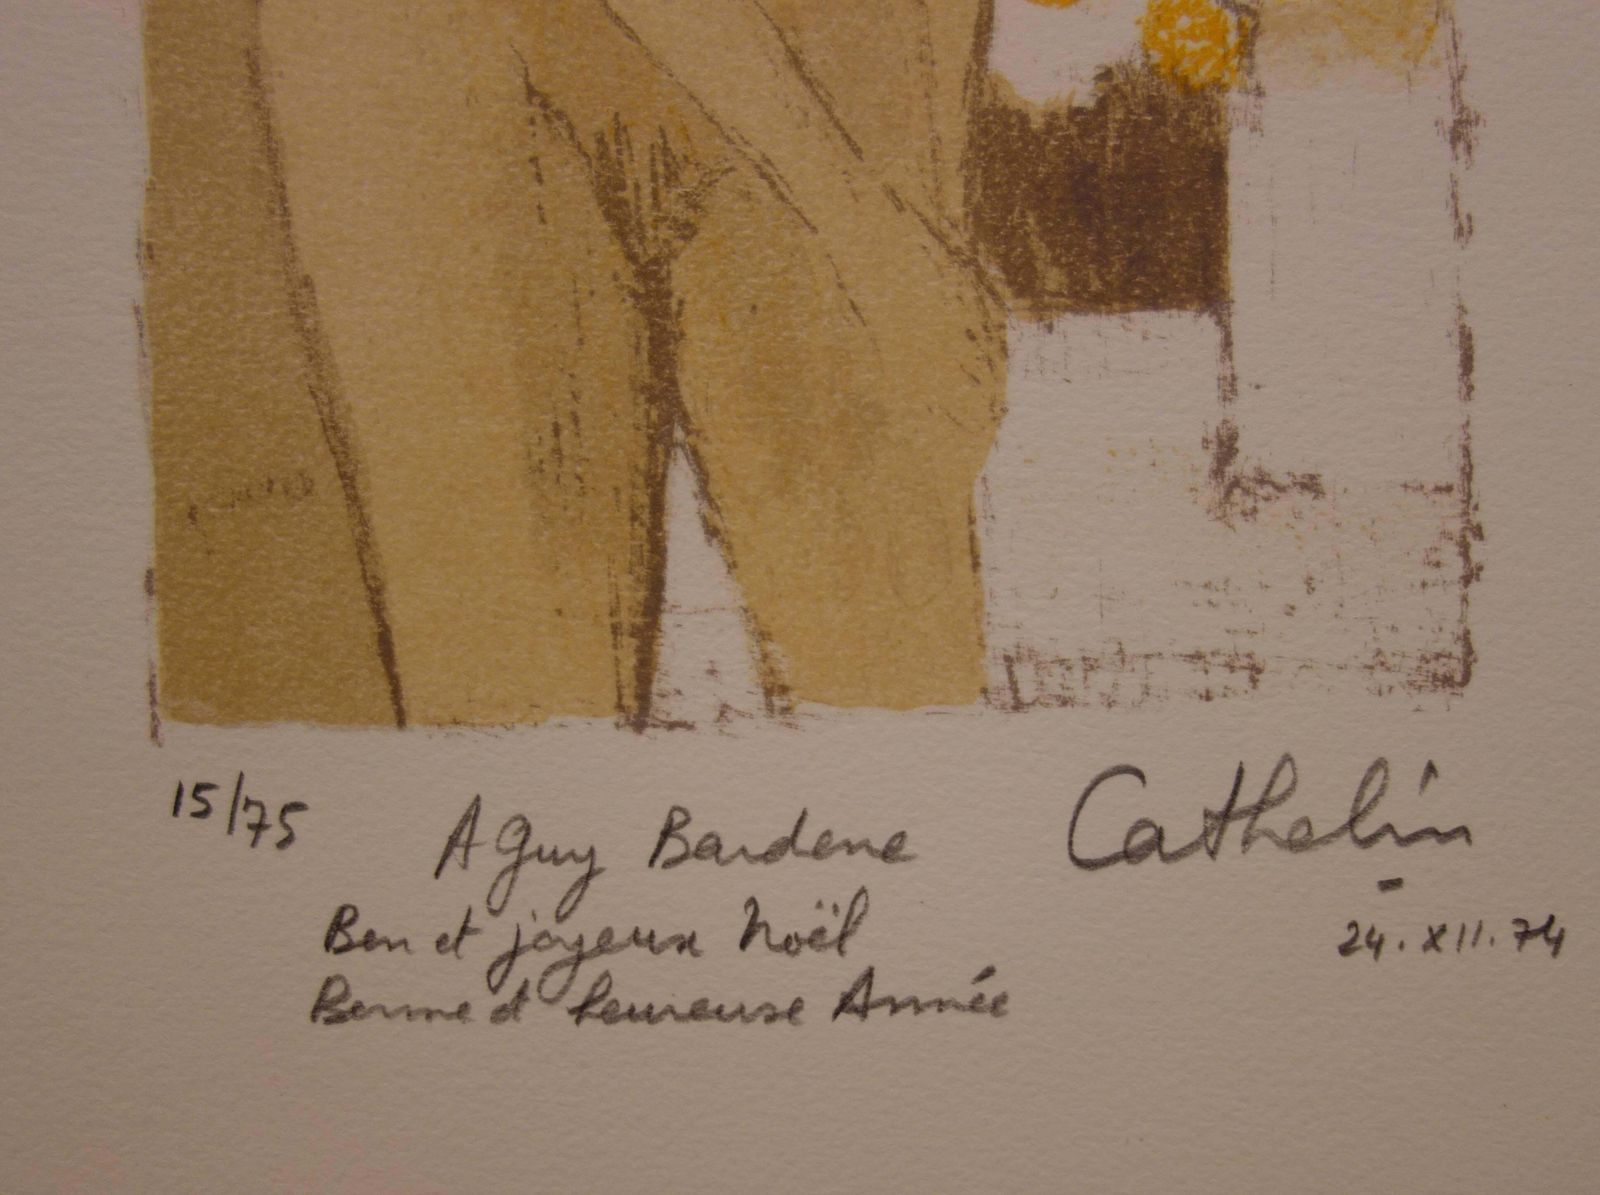 15/75
A Guy Bardone
Bon et joyeux Noël
Bonne et heureuse Année
Cathelin
24.XII.74